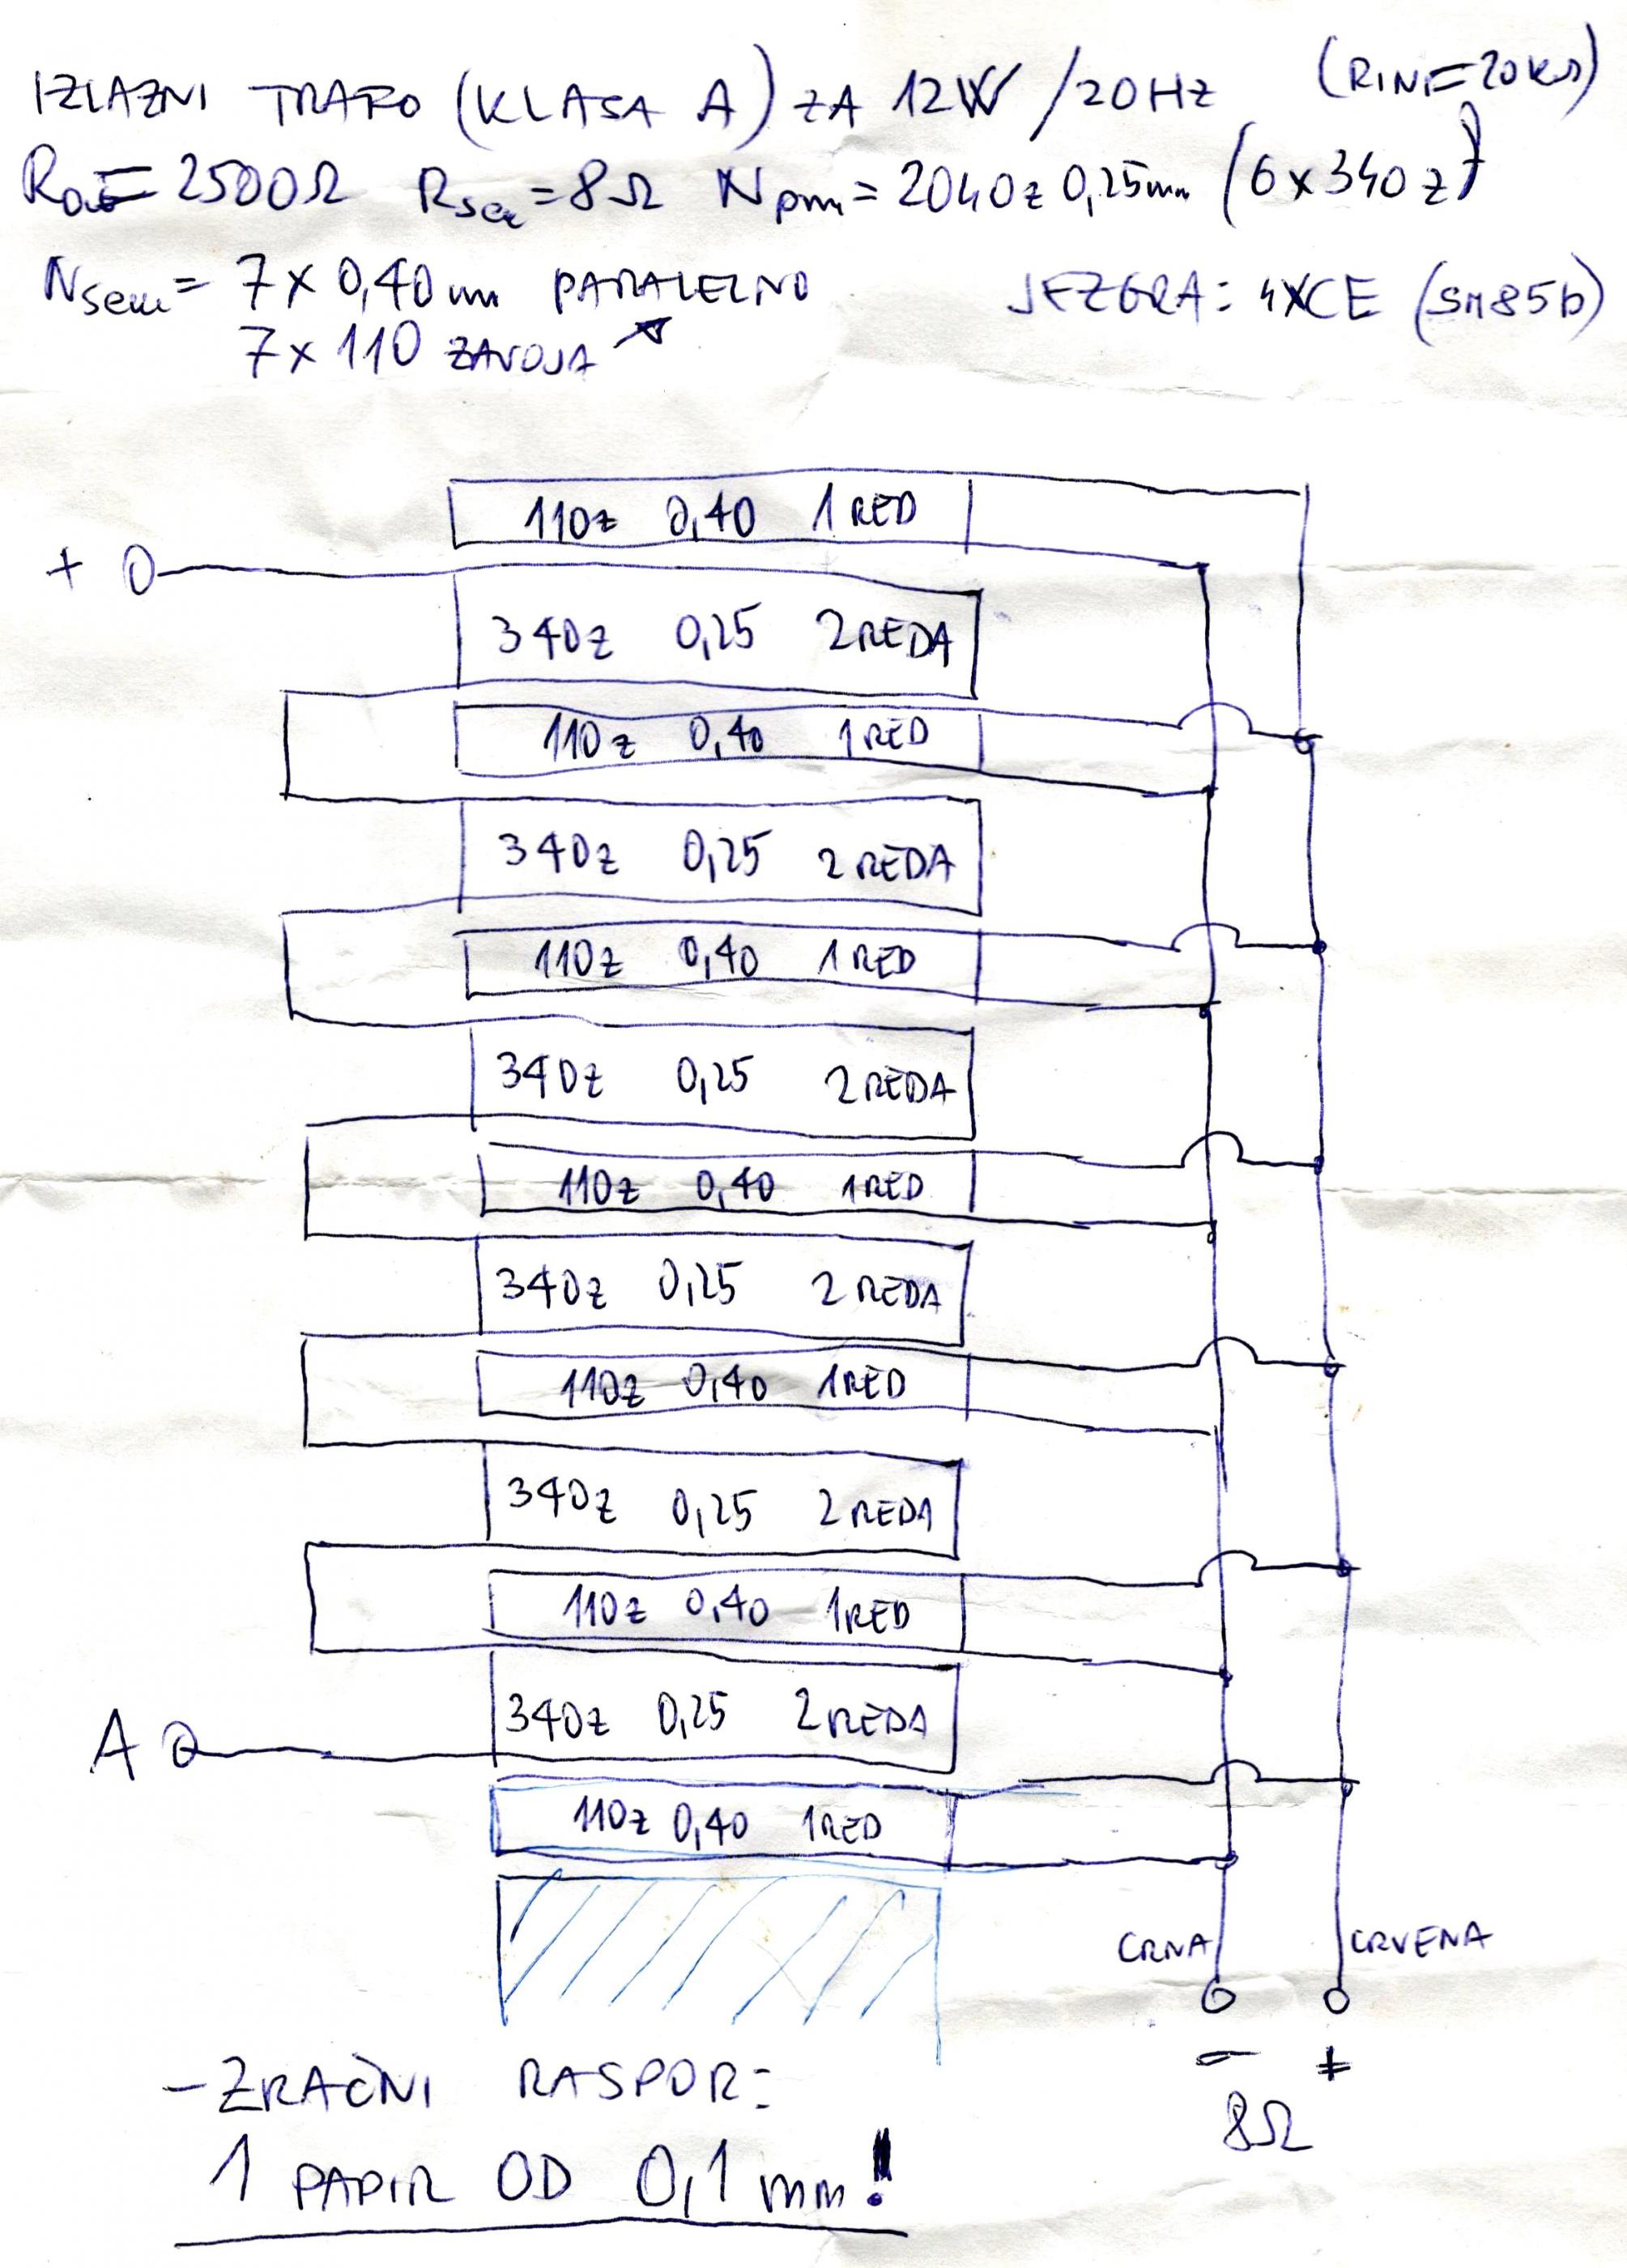 IZLAZNI TRAFO (KLASA A) ZA 12W /20Hz (RINF=20kΩ)
Raa= 2500Ω Rsec=8Ω Nprim= 2040z 0,25mm (6x340z)
Nsem= 7x0,40mm PARALELNO JEZGRA: 4XCE (SM85b)
7x110 ZAVOJA
110z 0,40 1RED
+
340z 0,25 2REDA
110z 0,40 1RED
340z 0,25 2REDA
110z 0,40 1RED
340z 0,25 2REDA
110z 0,40 1RED
340z 0,25 2REDA
110z 0,40 1RED
340z 0,25 2REDA
110z 0,40 1RED
340z 0,25 2REDA
A
110z 0,40 1RED
CRNA CRVENA
- +
8Ω
-ZRAČNI RASPOR:
1 PAPIR OD 0,1mm!